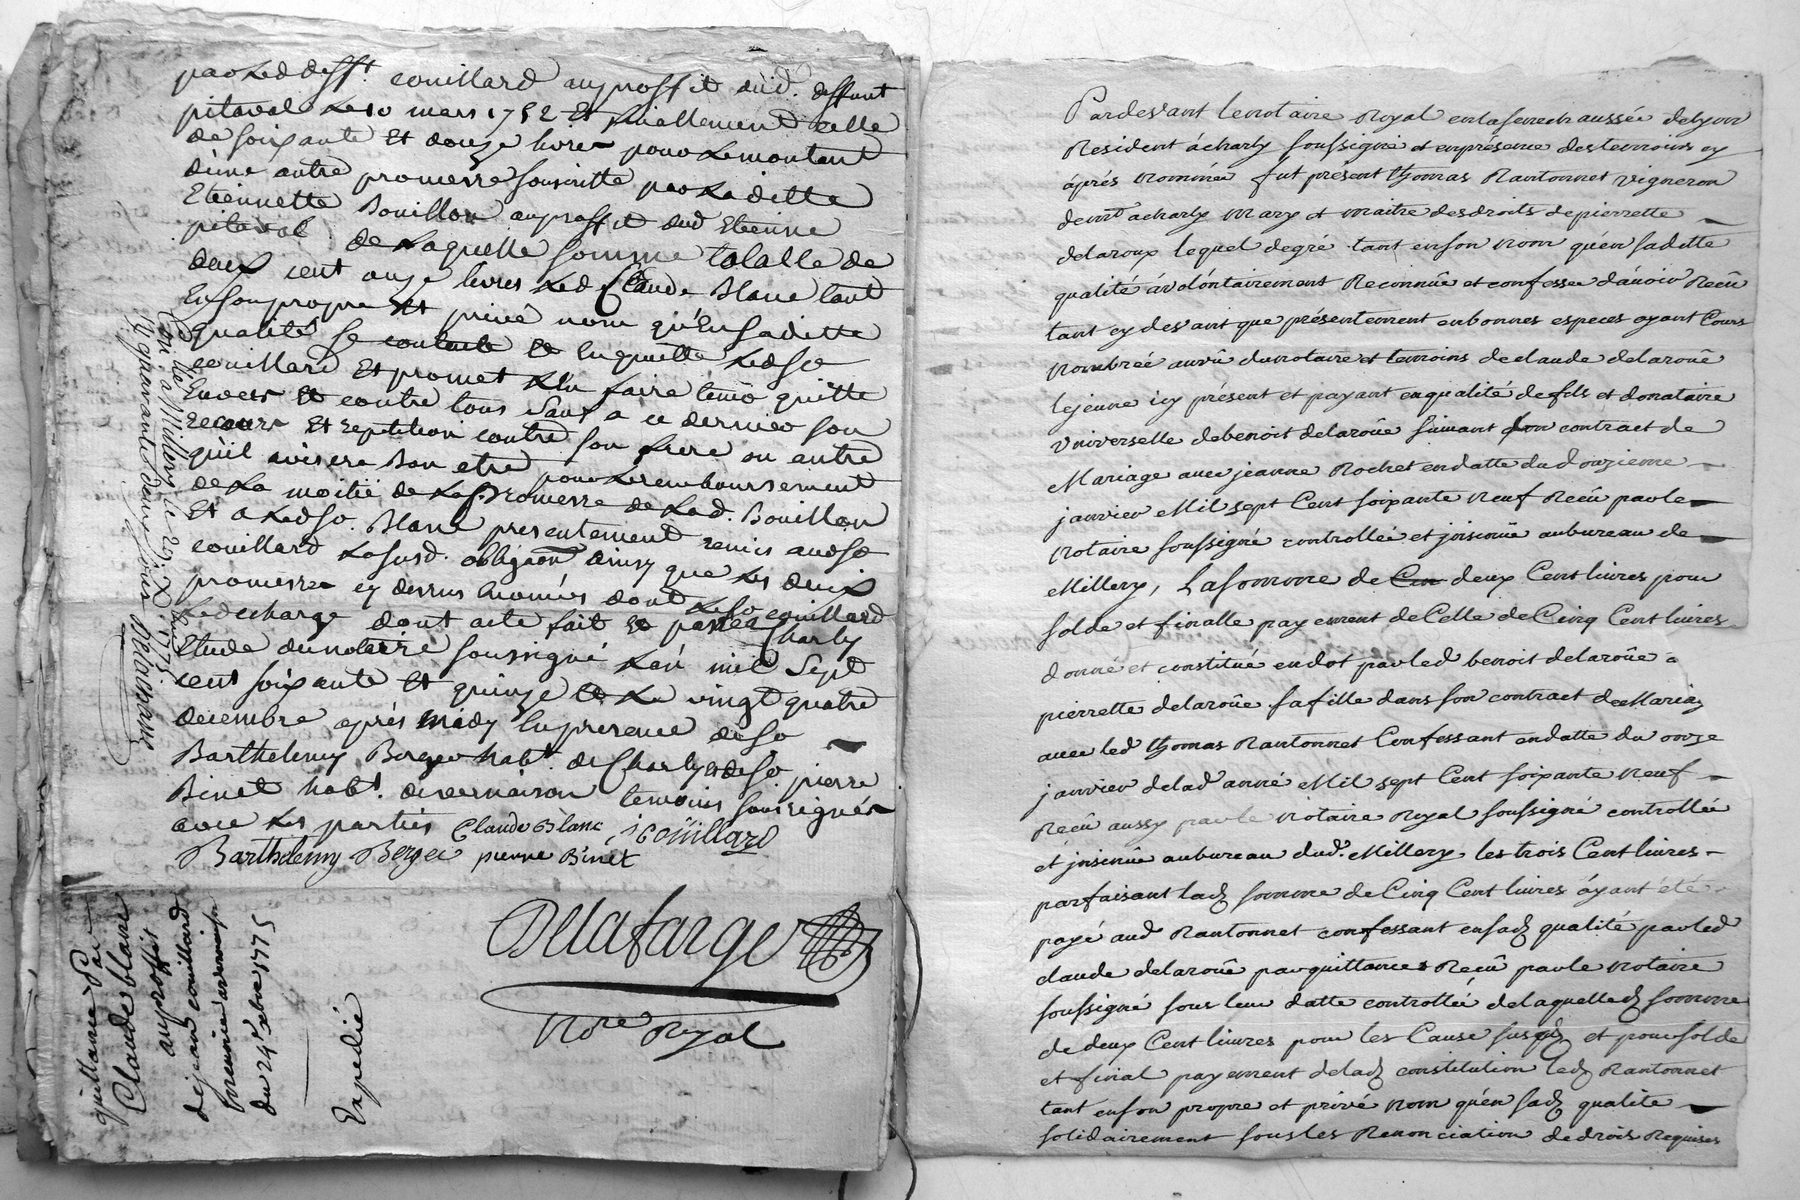 par led deff.t couillard au proffit dud. deffunt
pitaval le 10 mars 1752 et finallement celle
de soixante et douze livres pour le montant
d'une autre promesse souscritte par la ditte
Etiennette Bouillon au proffit dud Etienne
pitaval de laquelle somme totalle de
deux cent onze livres led Claude Blanc tant
En son propre et privé nom qu'En saditte
qualité se contente et En quitte led sr
couillard et promet l'En faire tenir quitte
Envers et contre tous sauf a ce dernier son
recours et repetition contre son frere ou autre
qu'il avisera bon etre pour le remboursement
de la moitié de la promesse de lad. Bouillon
Et a led sr. Blanc presentement remis aud sr
couillard la susd. obligaon ainsy que les deux
promesses cy dessus énoncées dont led sr couillard
le decharge dont acte fait et passé a Charly
Etude du notaire soussigné l'an mil sept
cent soixante et quinze et le vingt quatre
decembre aprés midy En presence de sr
Barthelemy Berger habt. de Charly et de sr pierre
Binet habt. de vernaison temoins soussignés
avec les parties Claude Blanc j couillard
Barthelemy Berger pierre Binet
Dellafarge
Nore Royal
Con.lle a Millery le 27 Xbre 1775
Reçu quarante deux sols Delamane
quittance par
Claude blanc
au proffit
de jean couillard
du 24e xbre 1775
Expedié
Pardevant le notaire Royal en la senechaussée de lyon
Resident á charly soussigné et en présence des temoins cy
áprés nommés fut présent thomas Rantonnet vigneron
demt a charly mary et maitre des droits de pierrette
delaroux lequel de gré tant en son nom qu'en sa ditte
qualité á volóntairement Reconnû et confessé d'avoir Reçû
tant cy devant que présentement en bonnes especes ayant Cours
nombrée au vû du notaire et temoins de claude delaroûe
le jeune icy présent et payant en qualité de fils et donataire
Vniverselle de benoit delaroûe suivant son contract de
Mariage avec jeanne Rochet en datte du douzieme
janvier Mil sept Cent soixante neuf Reçû par le
notaire soussigné controllée et jnsinûé au bureau de
Millery, La somme de Cin deux Cent livres pour
solde et finalle payement de Celle de Cinq Cent livres
donné et constitué en dot par led benoit delaroûe a
pierrette delaroûe sa fille dans son contract de Mariag
avec led thomas Rantonnet Confessant en datte du onze
janvier de lad année Mil sept Cent soixante neuf
Reçû aussy par le Notaire Royal soussigné controllée
et jnsinûé au bureau dud. Millery, les trois Cent livres
parfaisant lad somme de Cinq Cent livres áyant été
payé aud Rantonnet confessant en sad qualité par led
claude delaroûe par quittances Reçû par le notaire
soussigné sous leur datte controllée de laquelle d somme
de deux Cent livres pour les Cause susd et pour solde
et final payement de lad constitution led Rantonnet
tant en son propre et privé nom qu'én sad qualité
solidairement sous les Renonciation de drois Requises